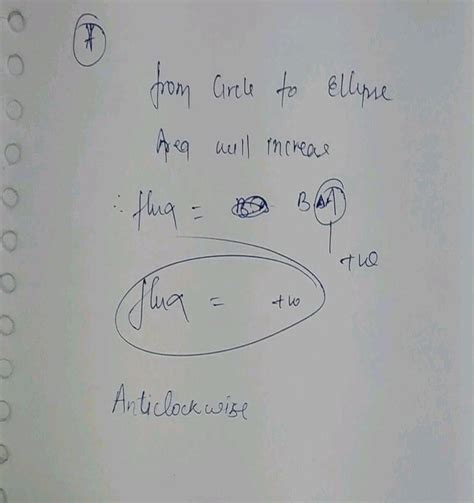 from Circle to Ellipse
Area will increase
∴ flux = B ΔA↑
+ve
flux = +ve
Anticlockwise